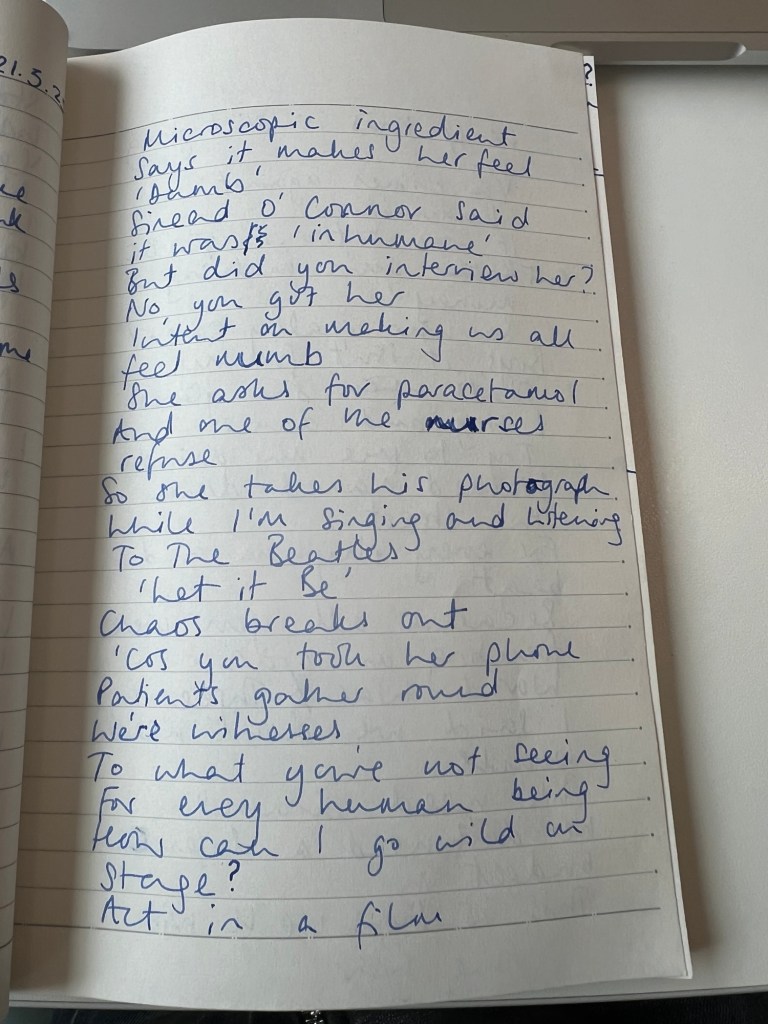 21.5.2
Microscopic ingredient
Says it makes her feel
'Dumb'
Sinead O' Connor said
it was 'inhumane'
But did you interview her?
No you got her
Intent on making us all
feel numb
She asks for paracetamol
And one of the nurses
refuse
So she takes his photograph
While I'm singing and listening
To The Beatles
'Let it Be'
Chaos breaks out
'Cos you took her phone
Patients gather round
We're witnesses
To what you're not seeing
For every human being
How can I go wild on
Stage?
Act in a film